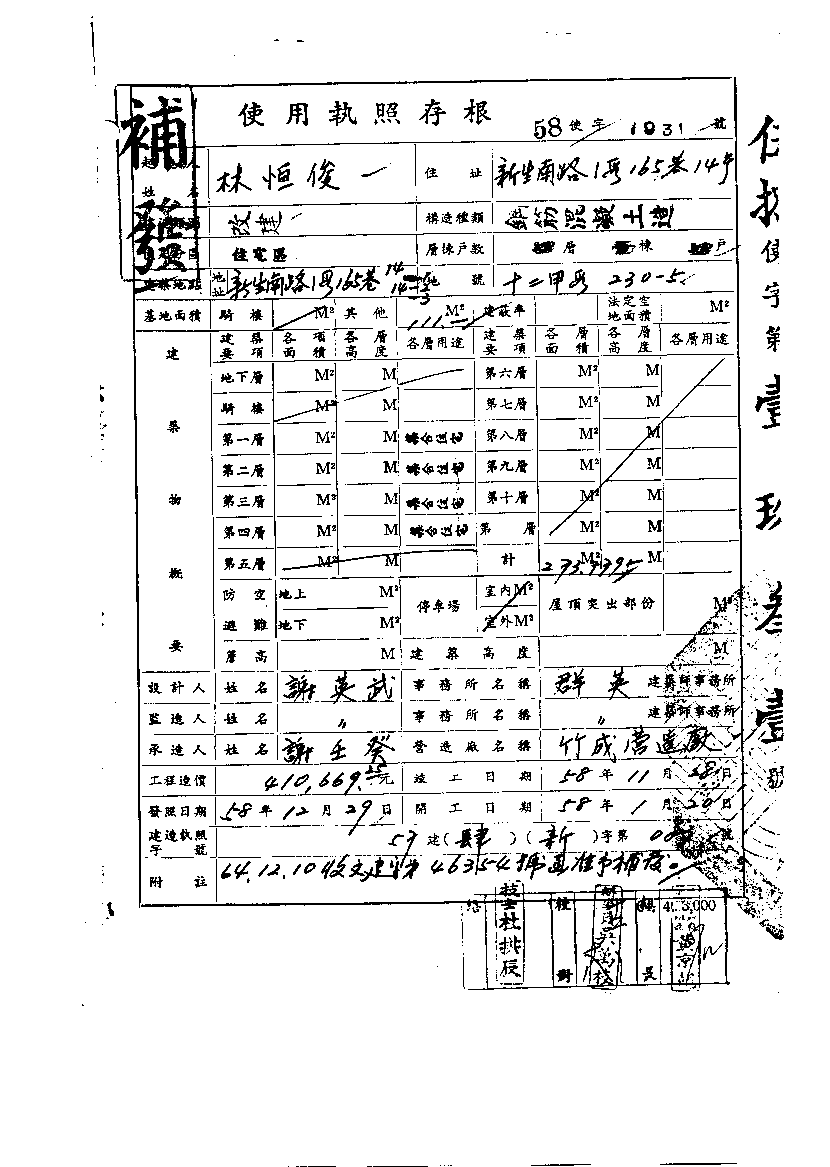 補發
使用執照存根
58 使字 1931 號
姓名 林恒俊 住址 新生南路1段165巷14号
改建 構造種類 鋼筋混凝土造
住宅區 層棟戶數 層 棟 戶
地址 新生南路1段165巷14 地號 十二甲段 230-5
基地面積 騎樓 M² 其他 111 M² 建蔽率 法定空地面積 M²
建築物概要
建築要項 各項面積 各層高度 各層用途 建築要項 各層面積 各層高度 各層用途
地下層 M² M 第六層 M² M
騎樓 M² M 第七層 M² M
第一層 M² M 集合住宅 第八層 M² M
第二層 M² M 集合住宅 第九層 M² M
第三層 M² M 集合住宅 第十層 M² M
第四層 M² M 集合住宅 第 層 M² M
第五層 M² M 計 M² M
防空避難 地上 M² 停車場 室內M² 屋頂突出部份 M²
地下 M² 室外M²
簷高 M 建築高度 M
設計人 姓名 謝英武 事務所名稱 群英 建築師事務所
監造人 姓名 〃 事務所名稱 〃 建築師事務所
承造人 姓名 謝壬癸 營造廠名稱 竹成營造廠
工程造價 410,669.25元 竣工日期 58年11月28日
發照日期 58年12月29日 開工日期 58年1月20日
建造執照字號 57建(肆)(新)字第 號
附註 64.12.10收文建字第46354號函准予補發。
技士杜拱辰 核對 組長
使字第壹玖叁壹號